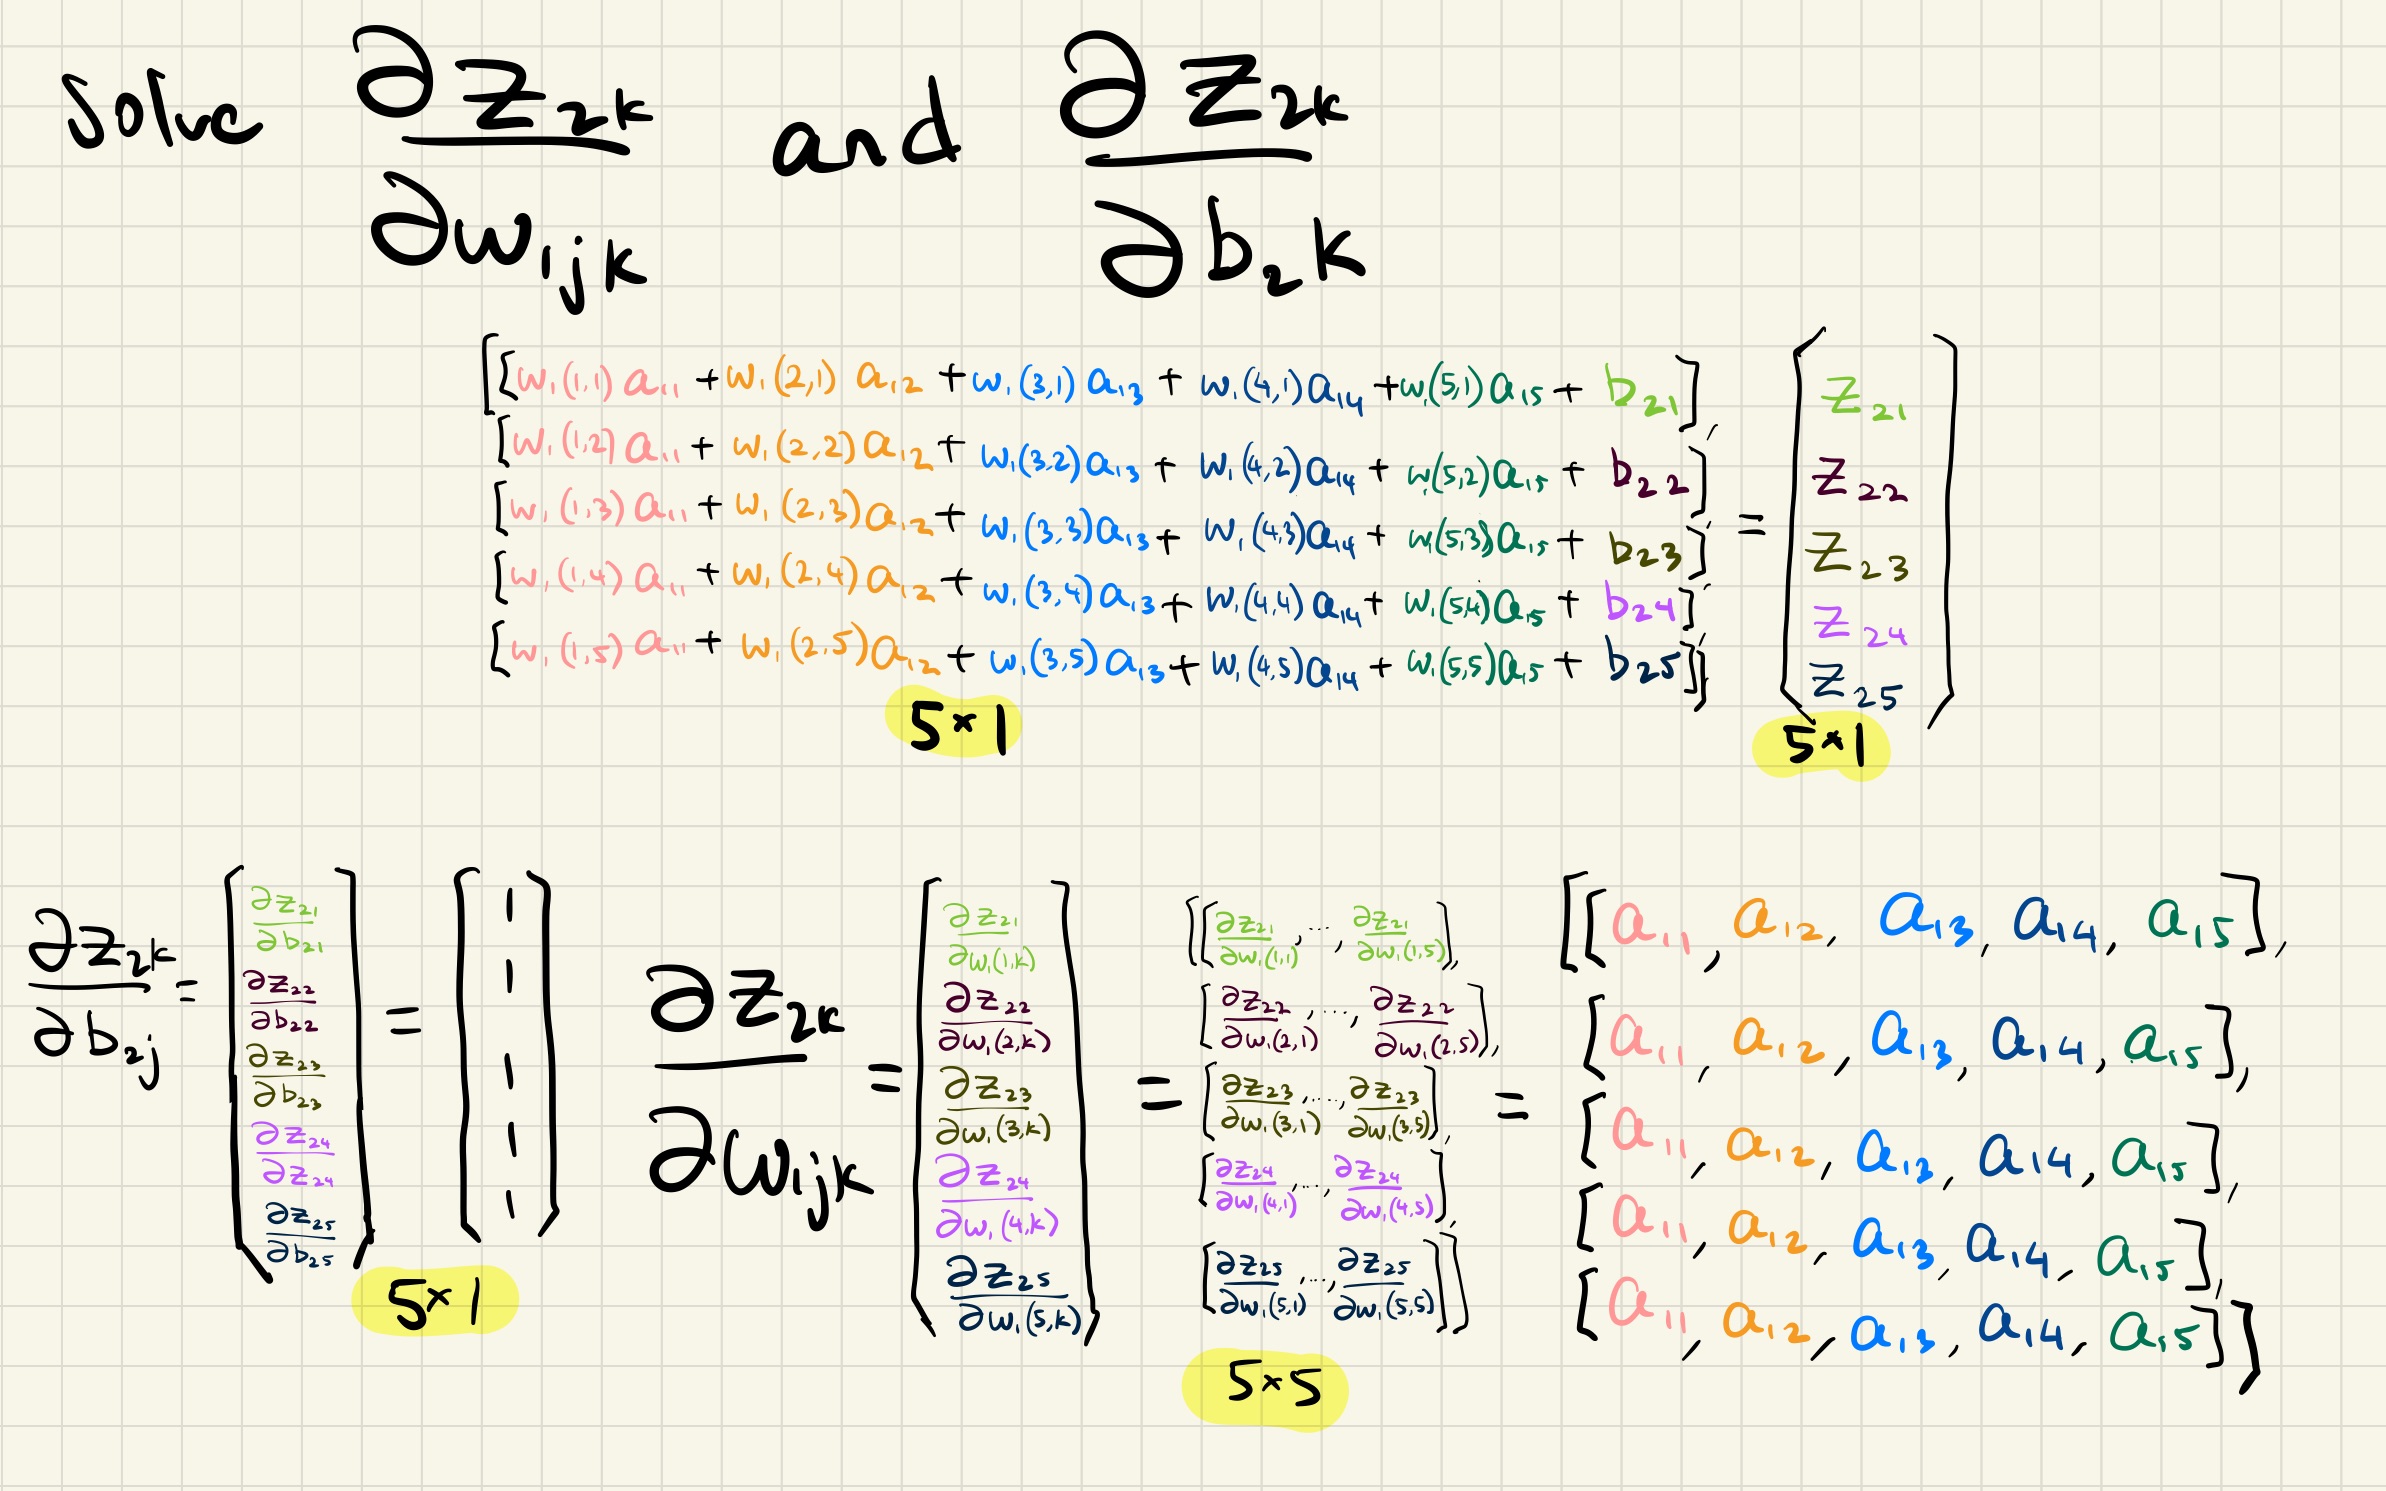 solve ∂z₂ₖ/∂w₁ⱼₖ and ∂z₂ₖ/∂b₂k
[[w₁(1,1)a₁₁ + w₁(2,1)a₁₂ + w₁(3,1)a₁₃ + w₁(4,1)a₁₄ + w₁(5,1)a₁₅ + b₂₁], = [z₂₁
[w₁(1,2)a₁₁ + w₁(2,2)a₁₂ + w₁(3,2)a₁₃ + w₁(4,2)a₁₄ + w₁(5,2)a₁₅ + b₂₂], z₂₂
[w₁(1,3)a₁₁ + w₁(2,3)a₁₂ + w₁(3,3)a₁₃ + w₁(4,3)a₁₄ + w₁(5,3)a₁₅ + b₂₃], z₂₃
[w₁(1,4)a₁₁ + w₁(2,4)a₁₂ + w₁(3,4)a₁₃ + w₁(4,4)a₁₄ + w₁(5,4)a₁₅ + b₂₄], z₂₄
[w₁(1,5)a₁₁ + w₁(2,5)a₁₂ + w₁(3,5)a₁₃ + w₁(4,5)a₁₄ + w₁(5,5)a₁₅ + b₂₅]] z₂₅]
5×1
5×1
∂z₂ₖ/∂b₂ⱼ =
[∂z₂₁/∂b₂₁
∂z₂₂/∂b₂₂
∂z₂₃/∂b₂₃
∂z₂₄/∂z₂₄
∂z₂₅/∂b₂₅]
=
[1
1
1
1
1]
5×1
∂z₂ₖ/∂w₁ⱼₖ =
[∂z₂₁/∂w₁(1,k)
∂z₂₂/∂w₁(2,k)
∂z₂₃/∂w₁(3,k)
∂z₂₄/∂w₁(4,k)
∂z₂₅/∂w₁(5,k)]
=
[[∂z₂₁/∂w₁(1,1), ..., ∂z₂₁/∂w₁(1,5)],
[∂z₂₂/∂w₁(2,1), ..., ∂z₂₂/∂w₁(2,5)],
[∂z₂₃/∂w₁(3,1), ..., ∂z₂₃/∂w₁(3,5)],
[∂z₂₄/∂w₁(4,1), ..., ∂z₂₄/∂w₁(4,5)],
[∂z₂₅/∂w₁(5,1), ..., ∂z₂₅/∂w₁(5,5)]]
5×5
=
[[a₁₁, a₁₂, a₁₃, a₁₄, a₁₅],
[a₁₁, a₁₂, a₁₃, a₁₄, a₁₅],
[a₁₁, a₁₂, a₁₃, a₁₄, a₁₅],
[a₁₁, a₁₂, a₁₃, a₁₄, a₁₅],
[a₁₁, a₁₂, a₁₃, a₁₄, a₁₅]]